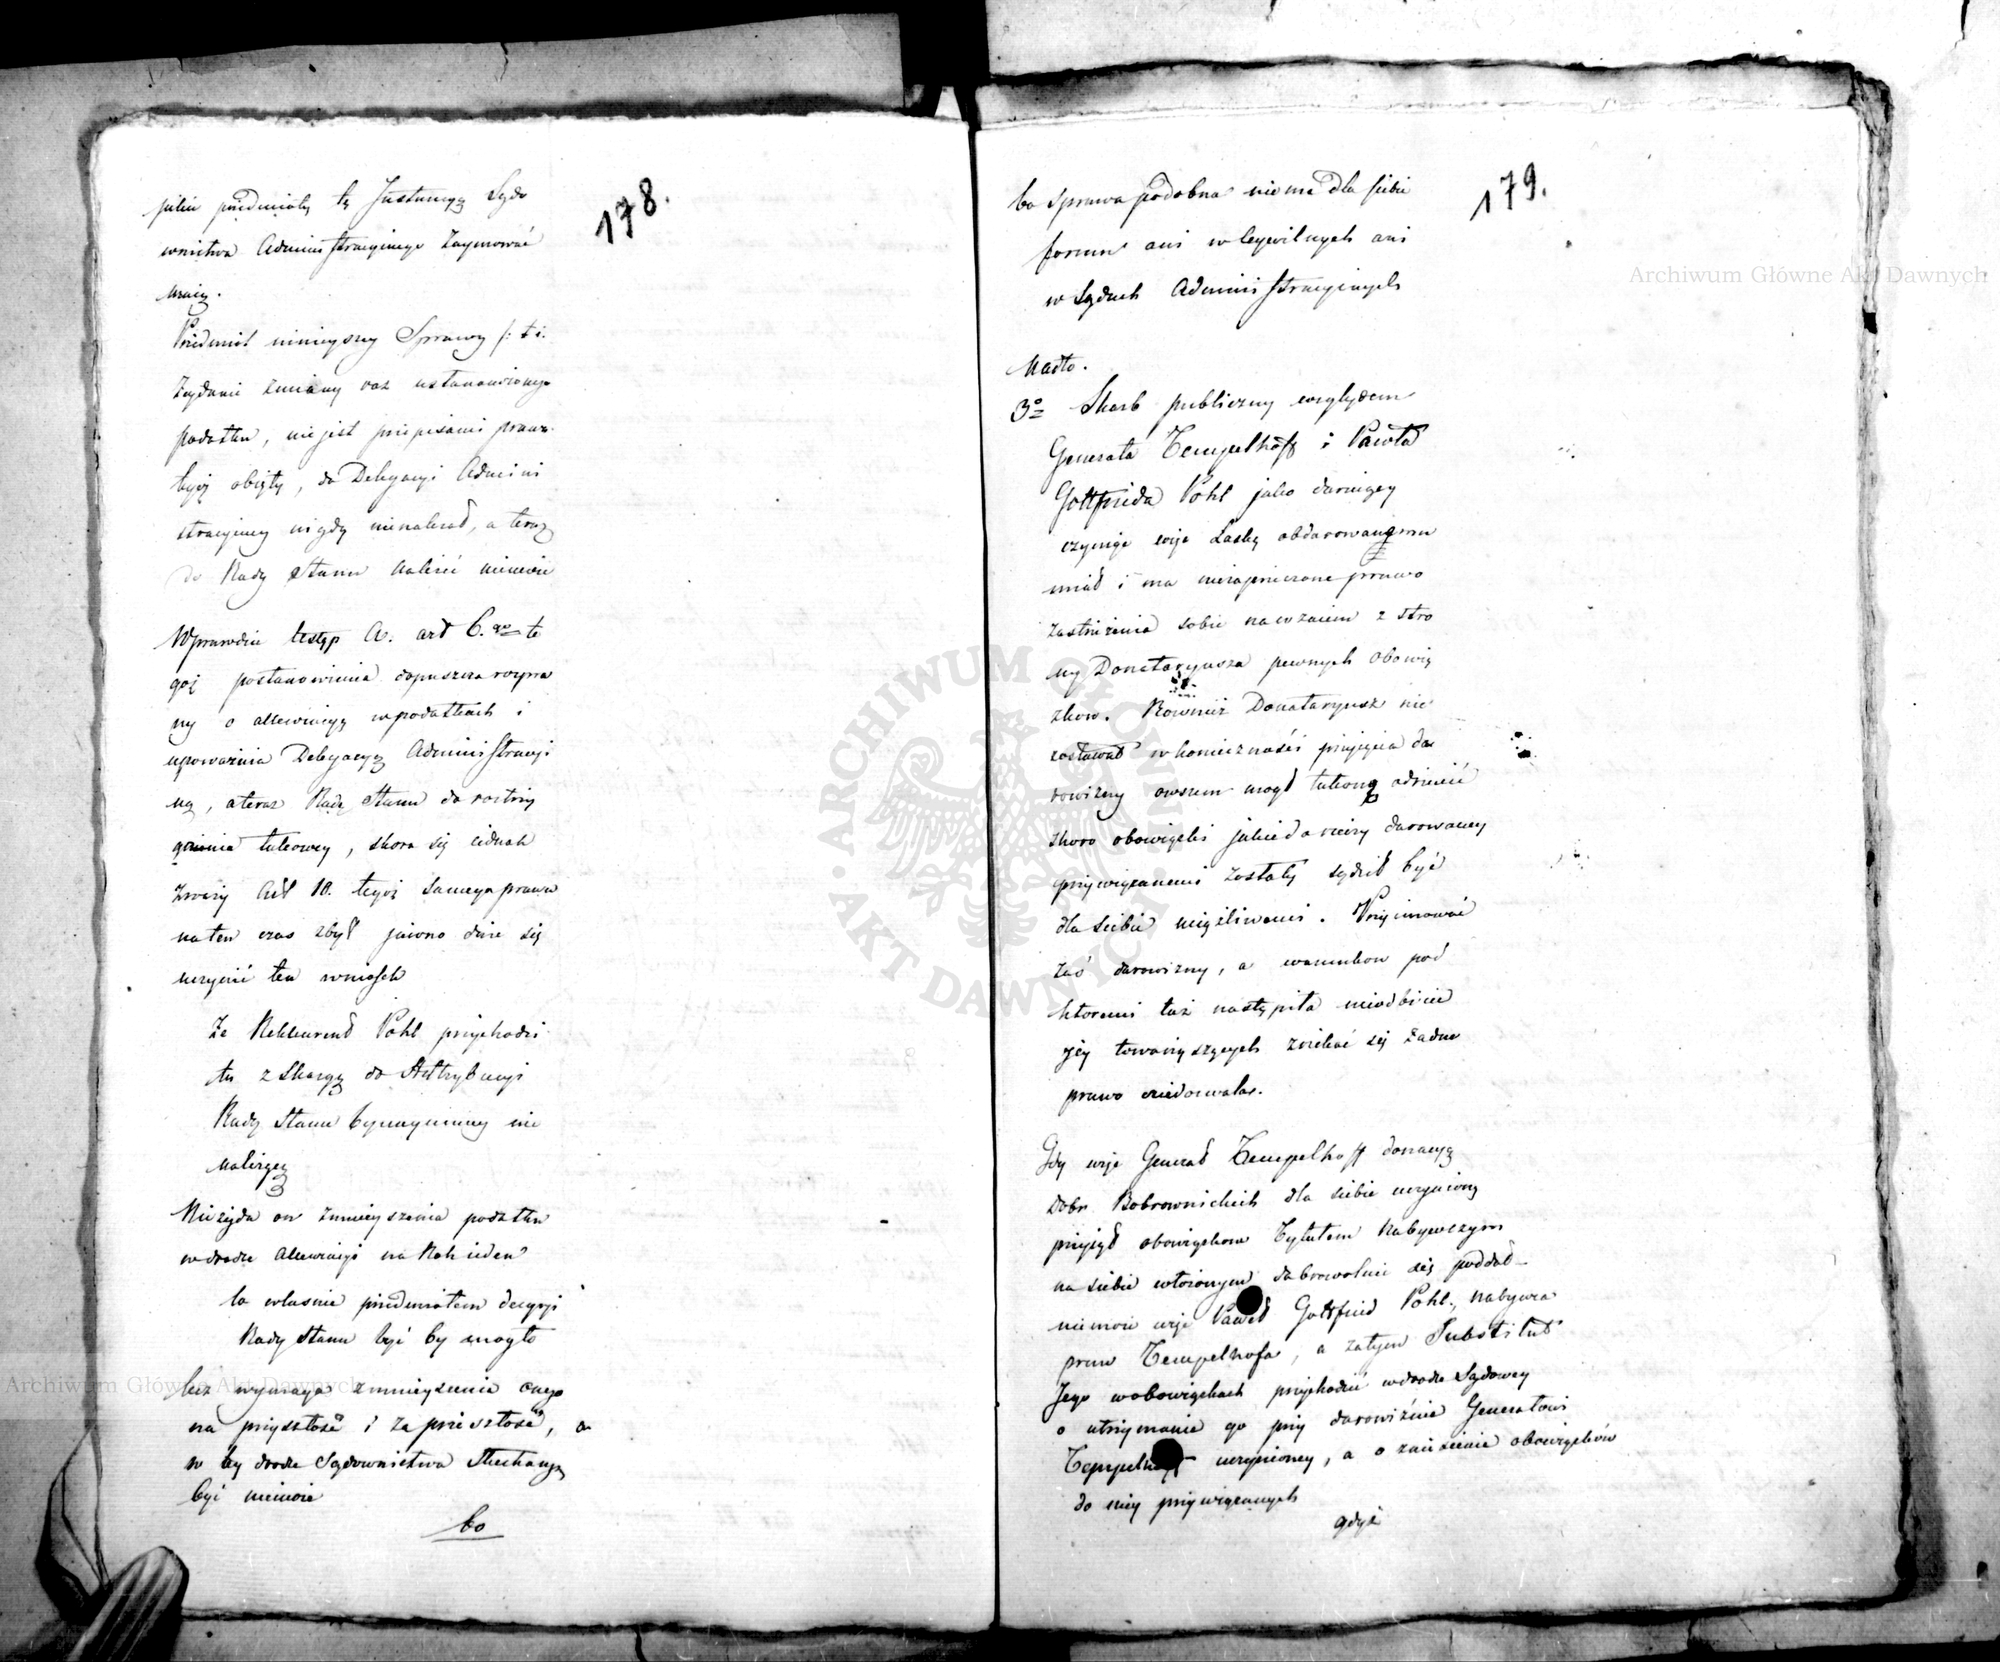 178.
jakie przedmioty tę Instancyą Sądo
wnictwa Administracyjnego zaymować
maią.
Przedmiot ninieyszey Sprawy /: t i.
Żądanie zmiany raz ustanowionego
podatku, nie jest przepisami prawa
tegoż obięty, do Delegacyi Admini
stracyiney nigdy nienależał, a teraz
do Rady Stanu należeć niemoże
Wprawdzie Ustęp A. art 6.go te
goż postanowienia dopuszcza rozpra
wy o allewiacyą w podatkach i
upoważnia Delegacyą Administracyi
ną, a teraz Radę Stanu do rozstrzy
gnienia takowey, skoro się iednak
zważy Art 10. tegoż samego prawa
na ten czas zbyt jawno daie się
uczynić ten wniosek
Że Rekkurent Pohl przychodzi
tu z skargą do Attrybucyi
Rady Stanu bynaymniey nie
należącą
Nieżąda on zmnieyszenia podatku
w drodze allewiacyi na Rok ieden
co własnie przedmiotem decyzyi
Rady Stanu być by mogło
lecz wymaga zmnieyszenia onego
na przyszłość i za przeszłość, co
w tey drodze Sądownictwa Słuchanym
być niemoże
bo
179.
bo sprawa podobna niema dla siebie
forum ani w Cywilnych ani
w Sądach Administracyinych
Nadto.
3o Skarb publiczny względem
Generała Tempelhoff i Pawła
Gottfrieda Pohl jako darującey
czyniąc więc Łaskę obdarowanemu
miał i ma niezaprzeczone prawo
zastrzeżenia sobie nawzaiem z stro
ny Donataryusza pewnych obowią
zkow. Rownież Donataryusz nie
zostawał w konieczności przyjęcia da
rowizny owszem mogł takową odrzucić
skoro obowiązki jakie darowizny darowaney
przywiązanemi zostały sądził być
dla siebie uciążliwemi. Przyimować
zaś darowizny, a warunkow pod
ktoremi taż nastąpiła nieodbicie
jey towarzyszących zrzekać się żadne
prawo niedozwala.
Gdy więc Generał Tempelhoff donacyą
Dobr Bobrownickich dla siebie uczynioną
przyjął obowiązkow Tytułem Nabywczym
na siebie włożonym dobrowolnie się poddał
niemoże więc Paweł Gottfried Pohl, nabywca
praw Tempelhofa, a zatym Substitut
Jego w obowiązkach przychodzić w drodze Sądowey
o utrzymanie go przy darowiźnie Generałowi
Tempelhoff uczynioney, a o zniesienie obowiązków
do niey przywiązanych
gdyż
Archiwum Główne Akt Dawnych
Archiwum Główne Akt Dawnych
ARCHIWUM GŁÓWNE AKT DAWNYCH